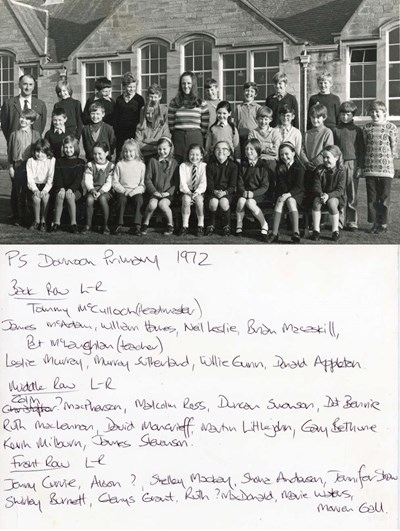 P5 Dornoch Primary 1972
Back Row L-R
Tommy McCulloch (Headmaster)
James McAdam, William Hames, Neil Leslie, Brian Macaskill,
Pat McLaughlan (teacher)
Leslie Murray, Murray Sutherland, Willie Gunn, Donald Appleton.
Middle Row L-R
Colin
Christopher? MacPherson, Malcolm Ross, Duncan Swanson, Dot Bennie
Ruth MacLennan, David Moncrieff, Martin Littlejohn, Gary Bethune
Kevin Milburn, James Stevenson.
Front Row L-R
Jenny Currie, Alison ?, Shelley Mackay, Shona Anderson, Jennifer Shaw
Shirley Burnett, Glenys Grant, Ruth ? MacDonald, Marie Waters,
Maureen Gall.